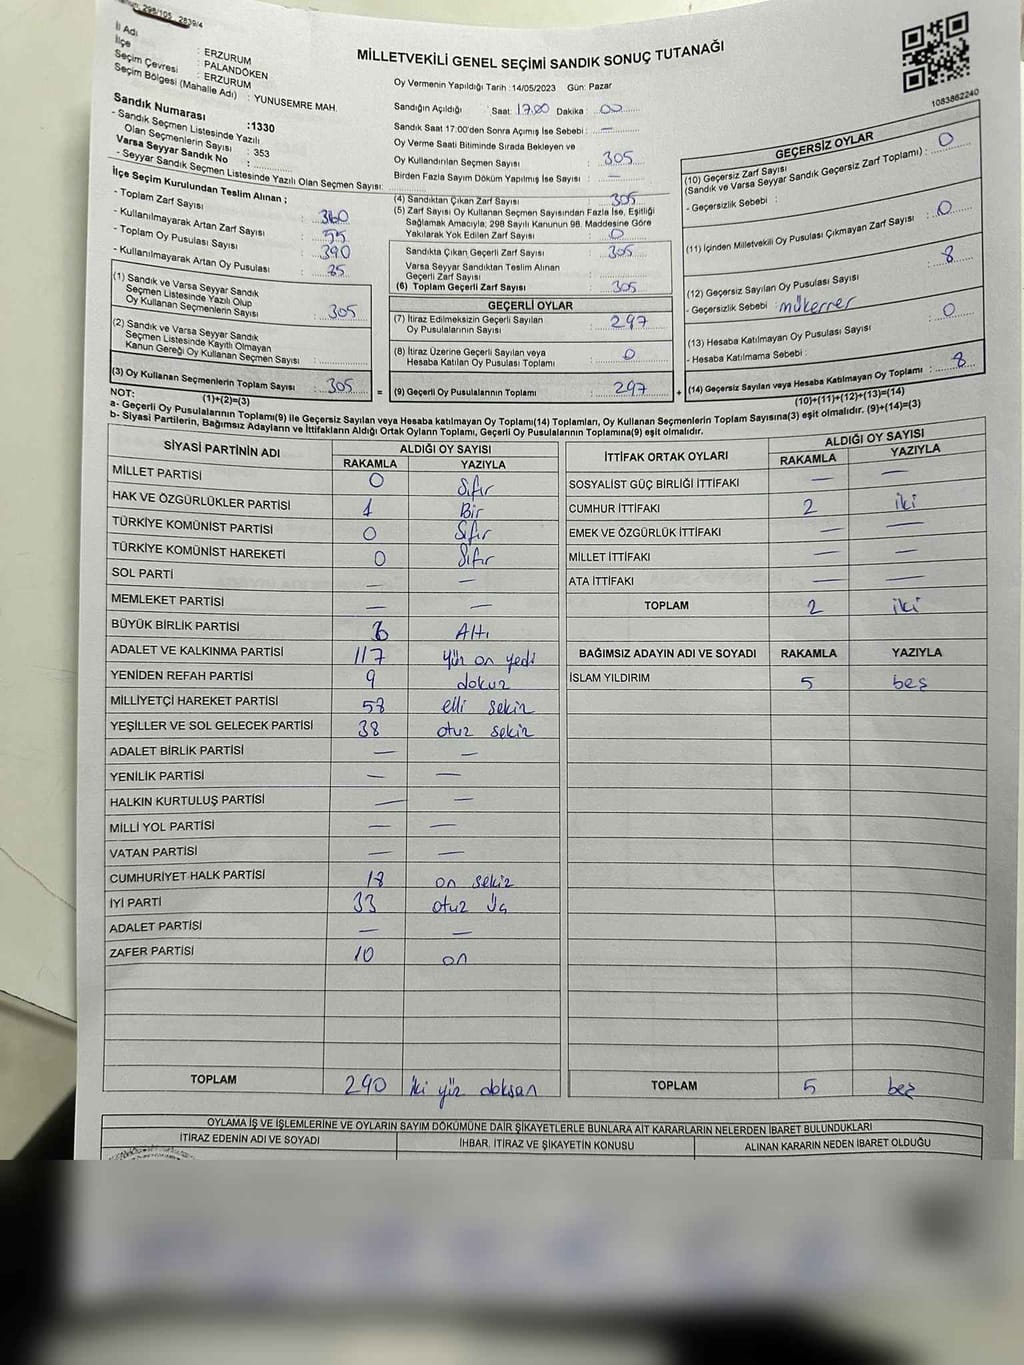 298/105 2839/4
İl Adı : ERZURUM
İlçe : PALANDÖKEN
Seçim Çevresi : ERZURUM
Seçim Bölgesi (Mahalle Adı) : YUNUSEMRE MAH.
Sandık Numarası : 1330
- Sandık Seçmen Listesinde Yazılı
Olan Seçmenlerin Sayısı : 353
Varsa Seyyar Sandık No :
- Seyyar Sandık Seçmen Listesinde Yazılı Olan Seçmen Sayısı:
İlçe Seçim Kurulundan Teslim Alınan ;
- Toplam Zarf Sayısı : 360
- Kullanılmayarak Artan Zarf Sayısı : 55
- Toplam Oy Pusulası Sayısı : 390
- Kullanılmayarak Artan Oy Pusulası : 85
(1) Sandık ve Varsa Seyyar Sandık
Seçmen Listesinde Yazılı Olup
Oy Kullanan Seçmenlerin Sayısı : 305
(2) Sandık ve Varsa Seyyar Sandık
Seçmen Listesinde Kayıtlı Olmayan
Kanun Gereği Oy Kullanan Seçmen Sayısı :
(3) Oy Kullanan Seçmenlerin Toplam Sayısı : 305
(1)+(2)=(3)
MİLLETVEKİLİ GENEL SEÇİMİ SANDIK SONUÇ TUTANAĞI
Oy Vermenin Yapıldığı Tarih :14/05/2023 Gün: Pazar
Sandığın Açıldığı Saat: 17.00 Dakika : 00
Sandık Saat 17:00'den Sonra Açımış İse Sebebi : —
Oy Verme Saati Bitiminde Sırada Bekleyen ve
Oy Kullandırılan Seçmen Sayısı : 305
Birden Fazla Sayım Döküm Yapılmış İse Sayısı : —
(4) Sandıktan Çıkan Zarf Sayısı : 305
(5) Zarf Sayısı Oy Kullanan Seçmen Sayısından Fazla İse, Eşitliği
Sağlamak Amacıyla; 298 Sayılı Kanunun 98. Maddesine Göre
Yakılarak Yok Edilen Zarf Sayısı : 0
Sandıkta Çıkan Geçerli Zarf Sayısı : 305
Varsa Seyyar Sandıktan Teslim Alınan
Geçerli Zarf Sayısı :
(6) Toplam Geçerli Zarf Sayısı : 305
GEÇERLİ OYLAR
(7) İtiraz Edilmeksizin Geçerli Sayılan
Oy Pusulalarının Sayısı : 297
(8) İtiraz Üzerine Geçerli Sayılan veya
Hesaba Katılan Oy Pusulası Toplamı : 0
= (9) Geçerli Oy Pusulalarının Toplamı : 297 +
1083862240
GEÇERSİZ OYLAR
(10) Geçersiz Zarf Sayısı
(Sandık ve Varsa Seyyar Sandık Geçersiz Zarf Toplamı) : 0
- Geçersizlik Sebebi :
(11) İçinden Milletvekili Oy Pusulası Çıkmayan Zarf Sayısı : 0
(12) Geçersiz Sayılan Oy Pusulası Sayısı : 8
- Geçersizlik Sebebi : mükerrer
(13) Hesaba Katılmayan Oy Pusulası Sayısı : 0
- Hesaba Katılmama Sebebi :
(14) Geçersiz Sayılan veya Hesaba Katılmayan Oy Toplamı : 8
(10)+(11)+(12)+(13)=(14)
NOT:
a- Geçerli Oy Pusulalarının Toplamı(9) ile Geçersiz Sayılan veya Hesaba katılmayan Oy Toplamı(14) Toplamları, Oy Kullanan Seçmenlerin Toplam Sayısına(3) eşit olmalıdır. (9)+(14)=(3)
b- Siyasi Partilerin, Bağımsız Adayların ve İttifakların Aldığı Ortak Oyların Toplamı, Geçerli Oy Pusulalarının Toplamına(9) eşit olmalıdır.
SİYASİ PARTİNİN ADI ALDIĞI OY SAYISI
RAKAMLA YAZIYLA
MİLLET PARTİSİ 0 Sıfır
HAK VE ÖZGÜRLÜKLER PARTİSİ 1 Bir
TÜRKİYE KOMÜNİST PARTİSİ 0 Sıfır
TÜRKİYE KOMÜNİST HAREKETİ 0 Sıfır
SOL PARTİ — —
MEMLEKET PARTİSİ — —
BÜYÜK BİRLİK PARTİSİ 6 Altı
ADALET VE KALKINMA PARTİSİ 117 Yüz on yedi
YENİDEN REFAH PARTİSİ 9 dokuz
MİLLİYETÇİ HAREKET PARTİSİ 58 elli sekiz
YEŞİLLER VE SOL GELECEK PARTİSİ 38 otuz sekiz
ADALET BİRLİK PARTİSİ — —
YENİLİK PARTİSİ — —
HALKIN KURTULUŞ PARTİSİ — —
MİLLİ YOL PARTİSİ — —
VATAN PARTİSİ — —
CUMHURİYET HALK PARTİSİ 18 on sekiz
İYİ PARTİ 33 otuz üç
ADALET PARTİSİ — —
ZAFER PARTİSİ 10 on
TOPLAM 290 iki yüz doksan
İTTİFAK ORTAK OYLARI ALDIĞI OY SAYISI
RAKAMLA YAZIYLA
SOSYALİST GÜÇ BİRLİĞİ İTTİFAKI — —
CUMHUR İTTİFAKI 2 iki
EMEK VE ÖZGÜRLÜK İTTİFAKI — —
MİLLET İTTİFAKI — —
ATA İTTİFAKI — —
TOPLAM 2 iki
BAĞIMSIZ ADAYIN ADI VE SOYADI RAKAMLA YAZIYLA
İSLAM YILDIRIM 5 beş
TOPLAM 5 beş
OYLAMA İŞ VE İŞLEMLERİNE VE OYLARIN SAYIM DÖKÜMÜNE DAİR ŞİKAYETLERLE BUNLARA AİT KARARLARIN NELERDEN İBARET BULUNDUKLARI
İTİRAZ EDENİN ADI VE SOYADI İHBAR, İTİRAZ VE ŞİKAYETİN KONUSU ALINAN KARARIN NEDEN İBARET OLDUĞU